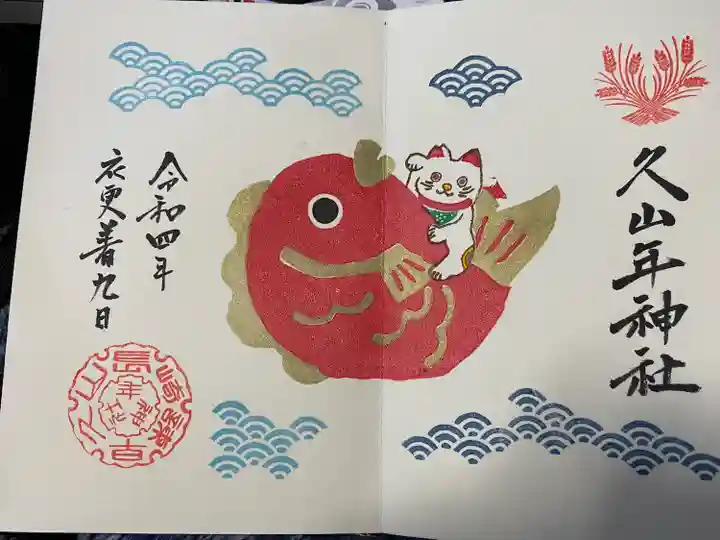 久山年神社
令和四年
衣更着九日